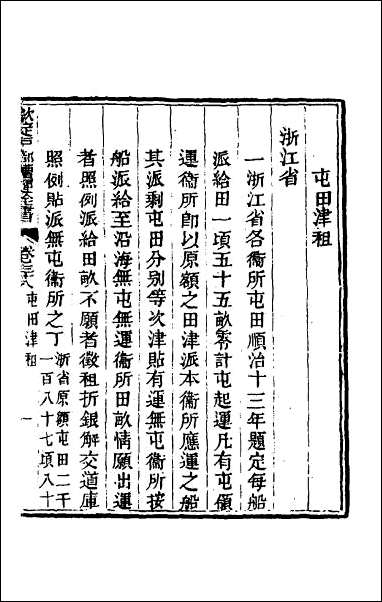 屯田津租
浙江省
一浙江省各衞所屯田順治十三年題定每船
派給田一頃五十五畝零計屯起運凡有屯領
運衞所卽以原額之田津派本衞所應運之船
其派剩屯田分别等次津貼有運無屯衞所按
船派給至沿海無屯無運衞所田畝情願出運
者照例派給田畝不願者徵租折銀解交道庫
照例貼派無屯衞所之丁浙省原額屯田二千
一百八十七頃八十
欽定戶部漕運全書
卷三十八 屯田津租 一